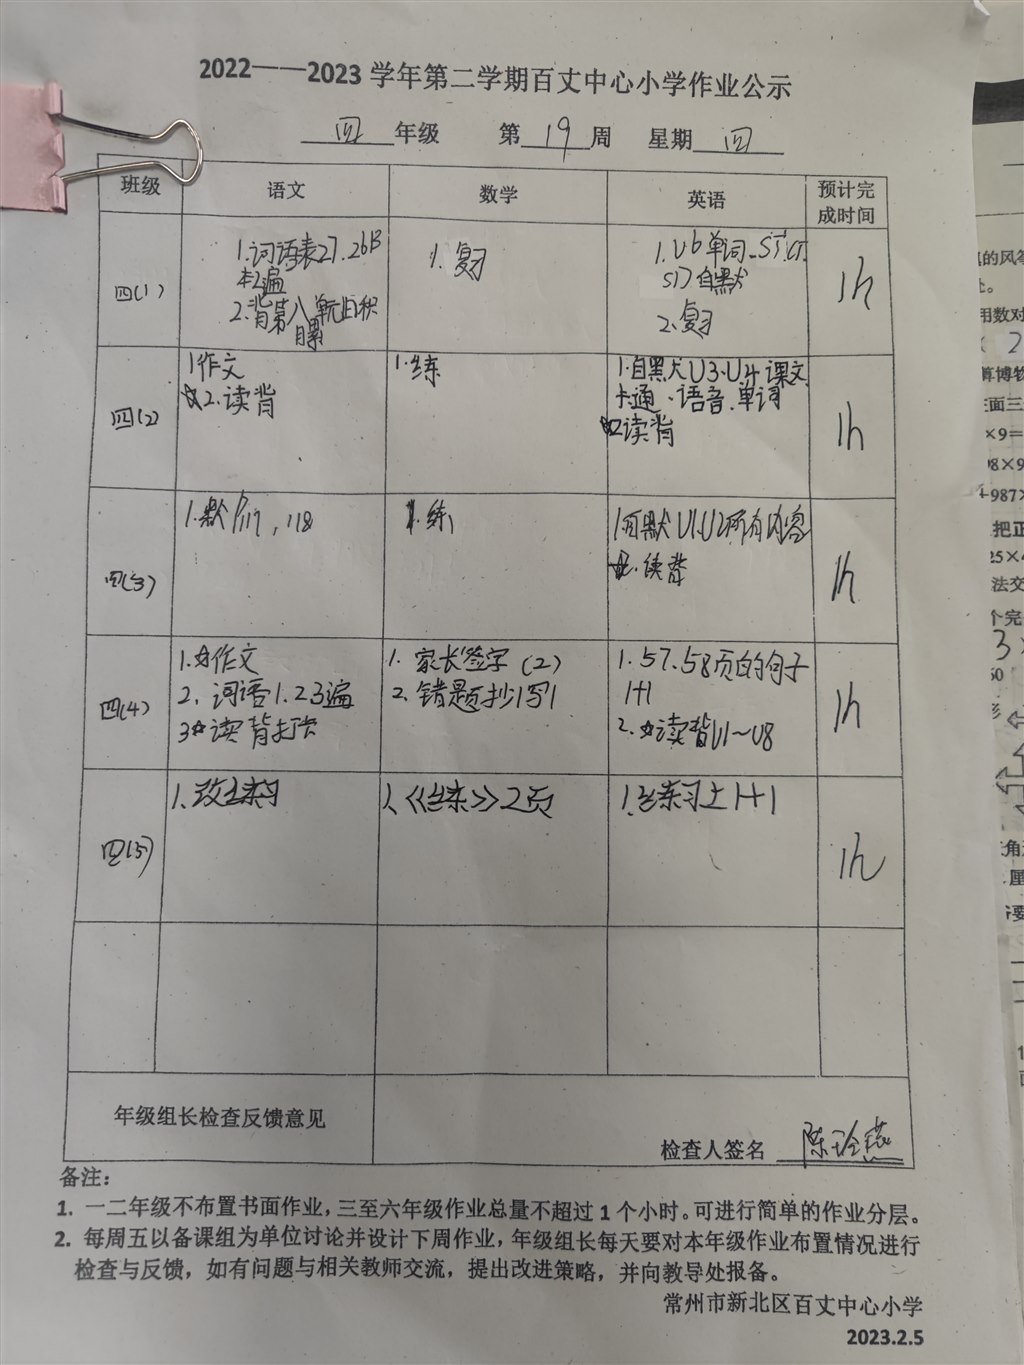 2022——2023学年第二学期百丈中心小学作业公示
四 年级 第 19 周 星期 四
班级 语文 数学 英语 预计完成时间
四(1)
1.词语表27.26B
本2遍
2.背第八单元日积
月累
1.复习
1.U6单词.ST.CT.
自默
2.复习
1h
四(2)
1作文
☆2.读背
1.练
1.自默U3.U4课文
卡通、语音、单词
☆2读背
1h
四(3)
1.默P117,118
1.练
1自默U1.U2所有内容
读背
1h
四(4)
1.☆作文
2.词语1.2 3遍
3☆读背打卡
1.家长签字(2)
2.错题抄1写1
1.57.58页的句子
1+1
2.☆读背U1~U8
1h
四(5)
1.练习
1.《练》2页
1.练习上1+1
1h
年级组长检查反馈意见
检查人签名 陈玲燕
备注：
1. 一二年级不布置书面作业，三至六年级作业总量不超过1个小时。可进行简单的作业分层。
2. 每周五以备课组为单位讨论并设计下周作业，年级组长每天要对本年级作业布置情况进行
检查与反馈，如有问题与相关教师交流，提出改进策略，并向教导处报备。
常州市新北区百丈中心小学
2023.2.5